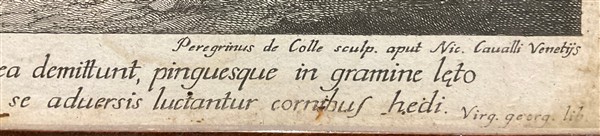 Peregrinus de Colle sculp. aput Nic. Cavalli Venetijs
ea demittunt, pinguesque in gramine lęto
se aduersis luctantur cornibus hedi.
Virg. georg. lib